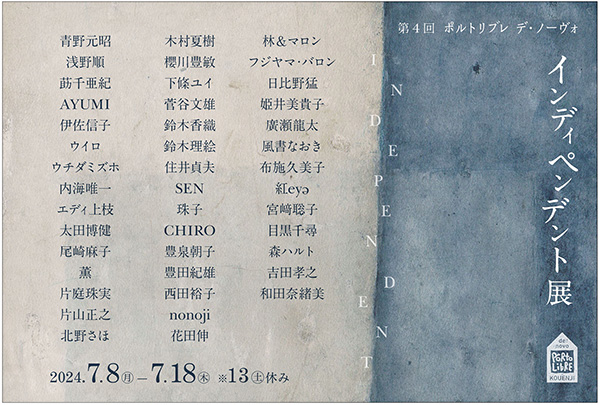 第4回 ポルトリブレ デ・ノーヴォ
インディペンデント展
INDEPENDENT
青野元昭
浅野順
莇千亜紀
AYUMI
伊佐信子
ウイロ
ウチダミズホ
内海唯一
エディ上枝
太田博健
尾崎麻子
薫
片庭珠実
片山正之
北野さほ
木村夏樹
櫻川豊敏
下條ユイ
菅谷文雄
鈴木香織
鈴木理絵
住井貞夫
SEN
珠子
CHIRO
豊泉朝子
豊田紀雄
西田裕子
nonoji
花田伸
林&マロン
フジヤマ・バロン
日比野猛
姫井美貴子
廣瀬龍太
風書なおき
布施久美子
紅eyə
宮﨑聡子
目黒千尋
森ハルト
吉田孝之
和田奈緒美
2024.7.8㊊ – 7.18㊍ ※13㊏休み
de・
novo
PORTO
LIBRE
KOUENJI